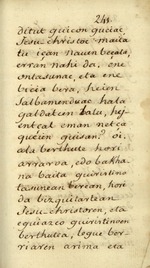 241.
ditut guicon guciac,
Jesu-christoc maita
tu içan nauen beçala,
erran nahi da, ene
ontasunac, eta ene
bicia bera, heien
Salbamenduac hala
galdatcen balu, hej
encat eman
guecien guisan? oi.
ala berthute hori
arraroa, edo bakha
na baita guiristino
tasunean berean, hori
da bizquitartean
Jesu-christoren, eta
eguiazco guiristinoen
berthutea, legue ber
riaren arima eta